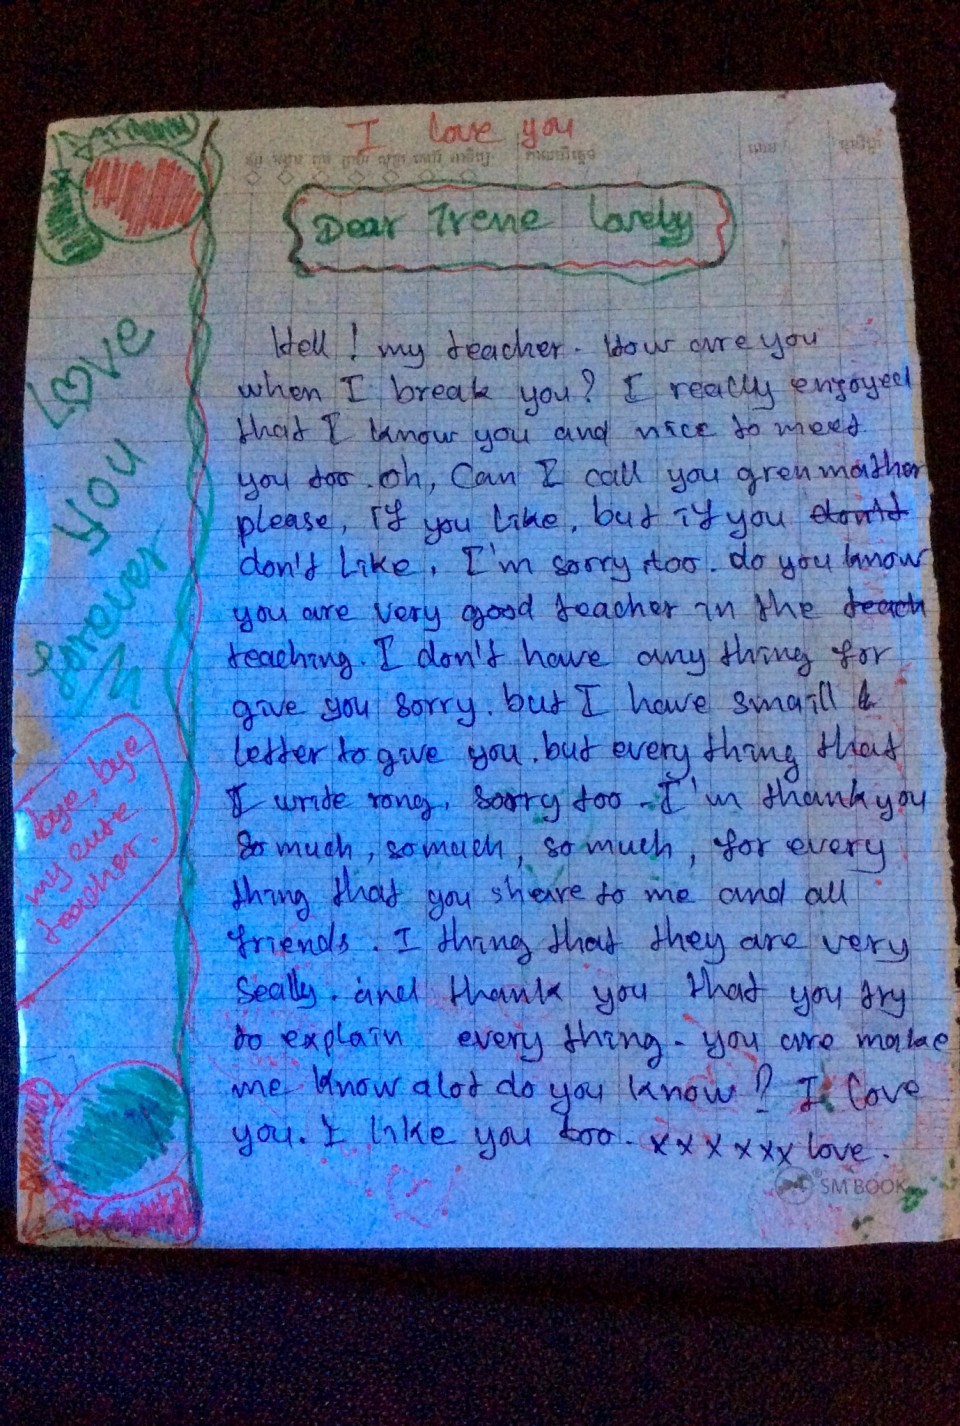 I love you
Dear Irene Lovely
Hell! my teacher. How are you
when I break you? I really enjoyed
that I know you and nice to meet
you too. oh, Can I call you grenmather
please, If you like, but if you don't
don't like, I'm sorry too. do you know
you are very good teacher in the teach
teaching. I don't have any thing for
give you sorry. but I have smaill
letter to give you. but every thing that
I write rong, sorry too. I'm thank you
so much, so much, so much, for every
thing that you sheare to me and all
friends. I thing that they are very
Seally. and thank you that you try
to explain every thing. you are make
me know alot do you know? I love
you. I like you too. xxxxxx love.
SM BOOK
Love
You
forever
bye, bye
my cute
teacher.